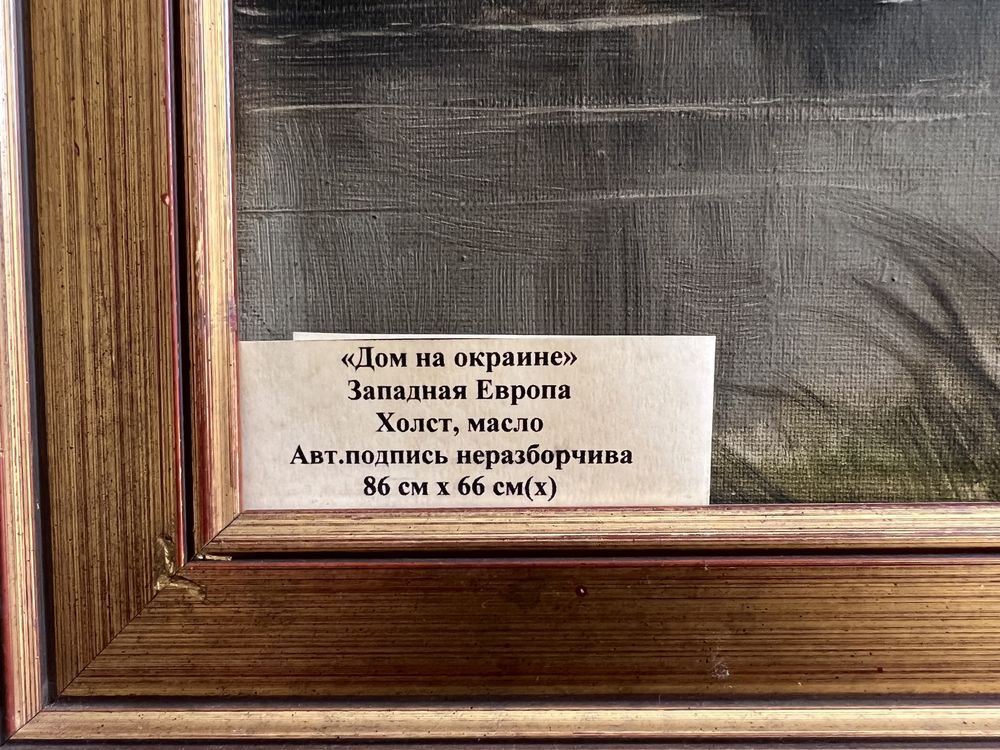 «Дом на окраине»
Западная Европа
Холст, масло
Авт.подпись неразборчива
86 см х 66 см(х)